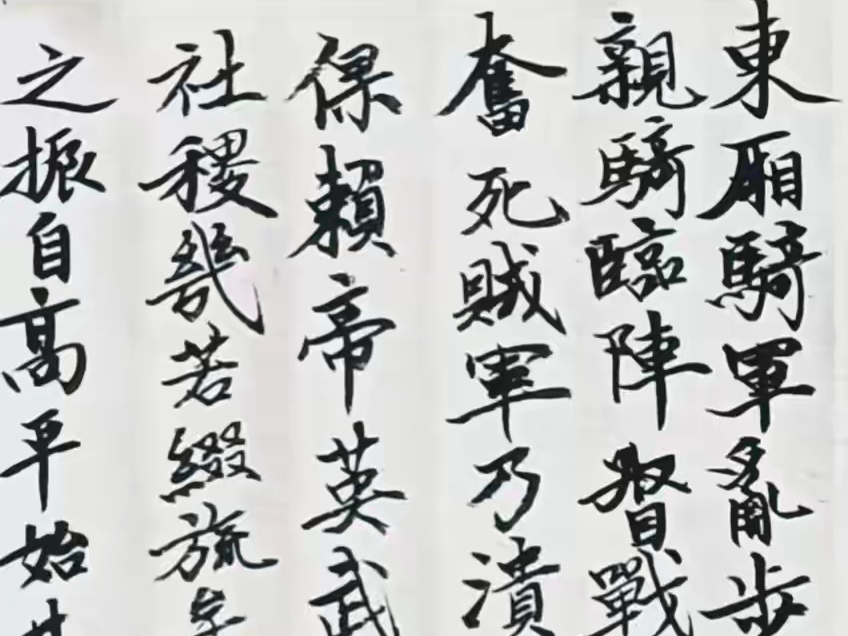 東厢騎軍亂步
親騎臨陣督戰
奮死賊軍乃潰
保賴帝英武
社稷幾若綴旒
之振自高平始